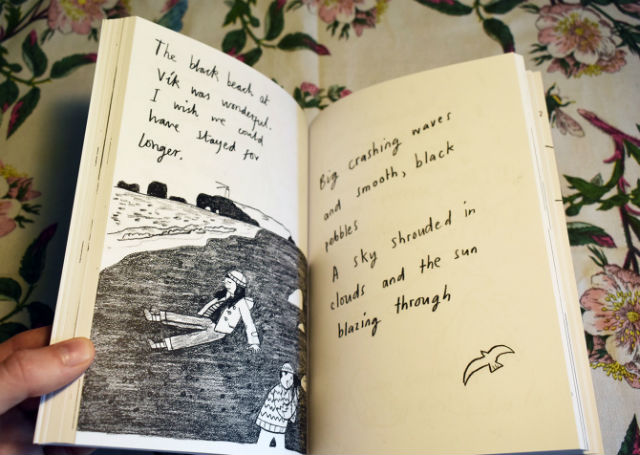 The black beach at
Vík was wonderful.
I wish we could
have stayed for
longer.
Big crashing waves
and smooth, black
pebbles
A sky shrouded in
clouds and the sun
blazing through